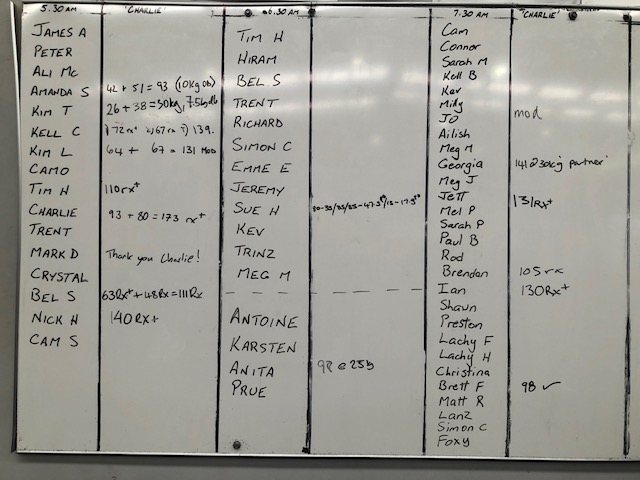 5.30 AM "CHARLIE"
JAMES A
PETER
ALI MC
AMANDA S 42 + 51 = 93 (10kg db)
KIM T 26 + 38 = 50kg, 7.5kg db
KELL C 1) 72 rx+ 2) 67 rx T) 139.
KIM L 64 + 67 = 131 MOD
CAMO
TIM H 110rx+
CHARLIE 93 + 80 = 173 rx+
TRENT
MARK D Thank you Charlie!
CRYSTAL
BEL S 63Rx+ + 48Rx = 111Rx
NICK H 140 RX+
CAM S
6.30 AM
TIM H
HIRAM
BEL S
TRENT
RICHARD
SIMON C
EMME E
JEREMY
SUE H
KEV
TRINZ
MEG M
ANTOINE
KARSTEN
ANITA 98 @ 25b
PRUE
7.30 AM "CHARLIE"
Cam
Connor
Sarah M
Kell B
Kev
Milly
JO mod
Ailish
Meg M
Georgia 141 @ 30kg partner
Meg J
Jett 131Rx+
Mel P
Sarah P
Paul B
Rod
Brendan 105 rx
Ian 130Rx+
Shawn
Preston
Lachy F
Lachy H
Christina
Brett F 98 ✓
Matt R
Lanz
Simon C
Foxy